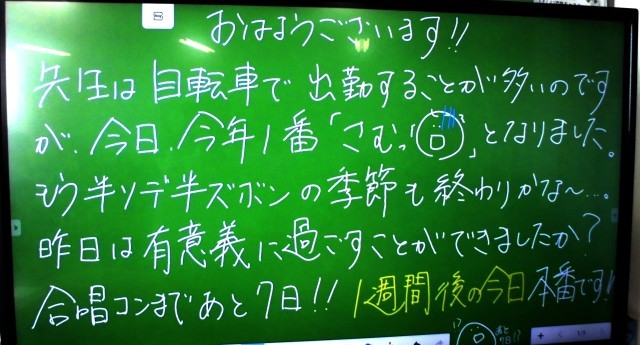 おはようございます!!
先生は自転車で出勤することが多いのです
が、今日、今年1番「さむっ」となりました。
もう半ソデ半ズボンの季節も終わりかな～…。
昨日は有意義に過ごすことができましたか?
合唱コンまであと7日!! 1週間後の今日本番です!!
あと7日!!